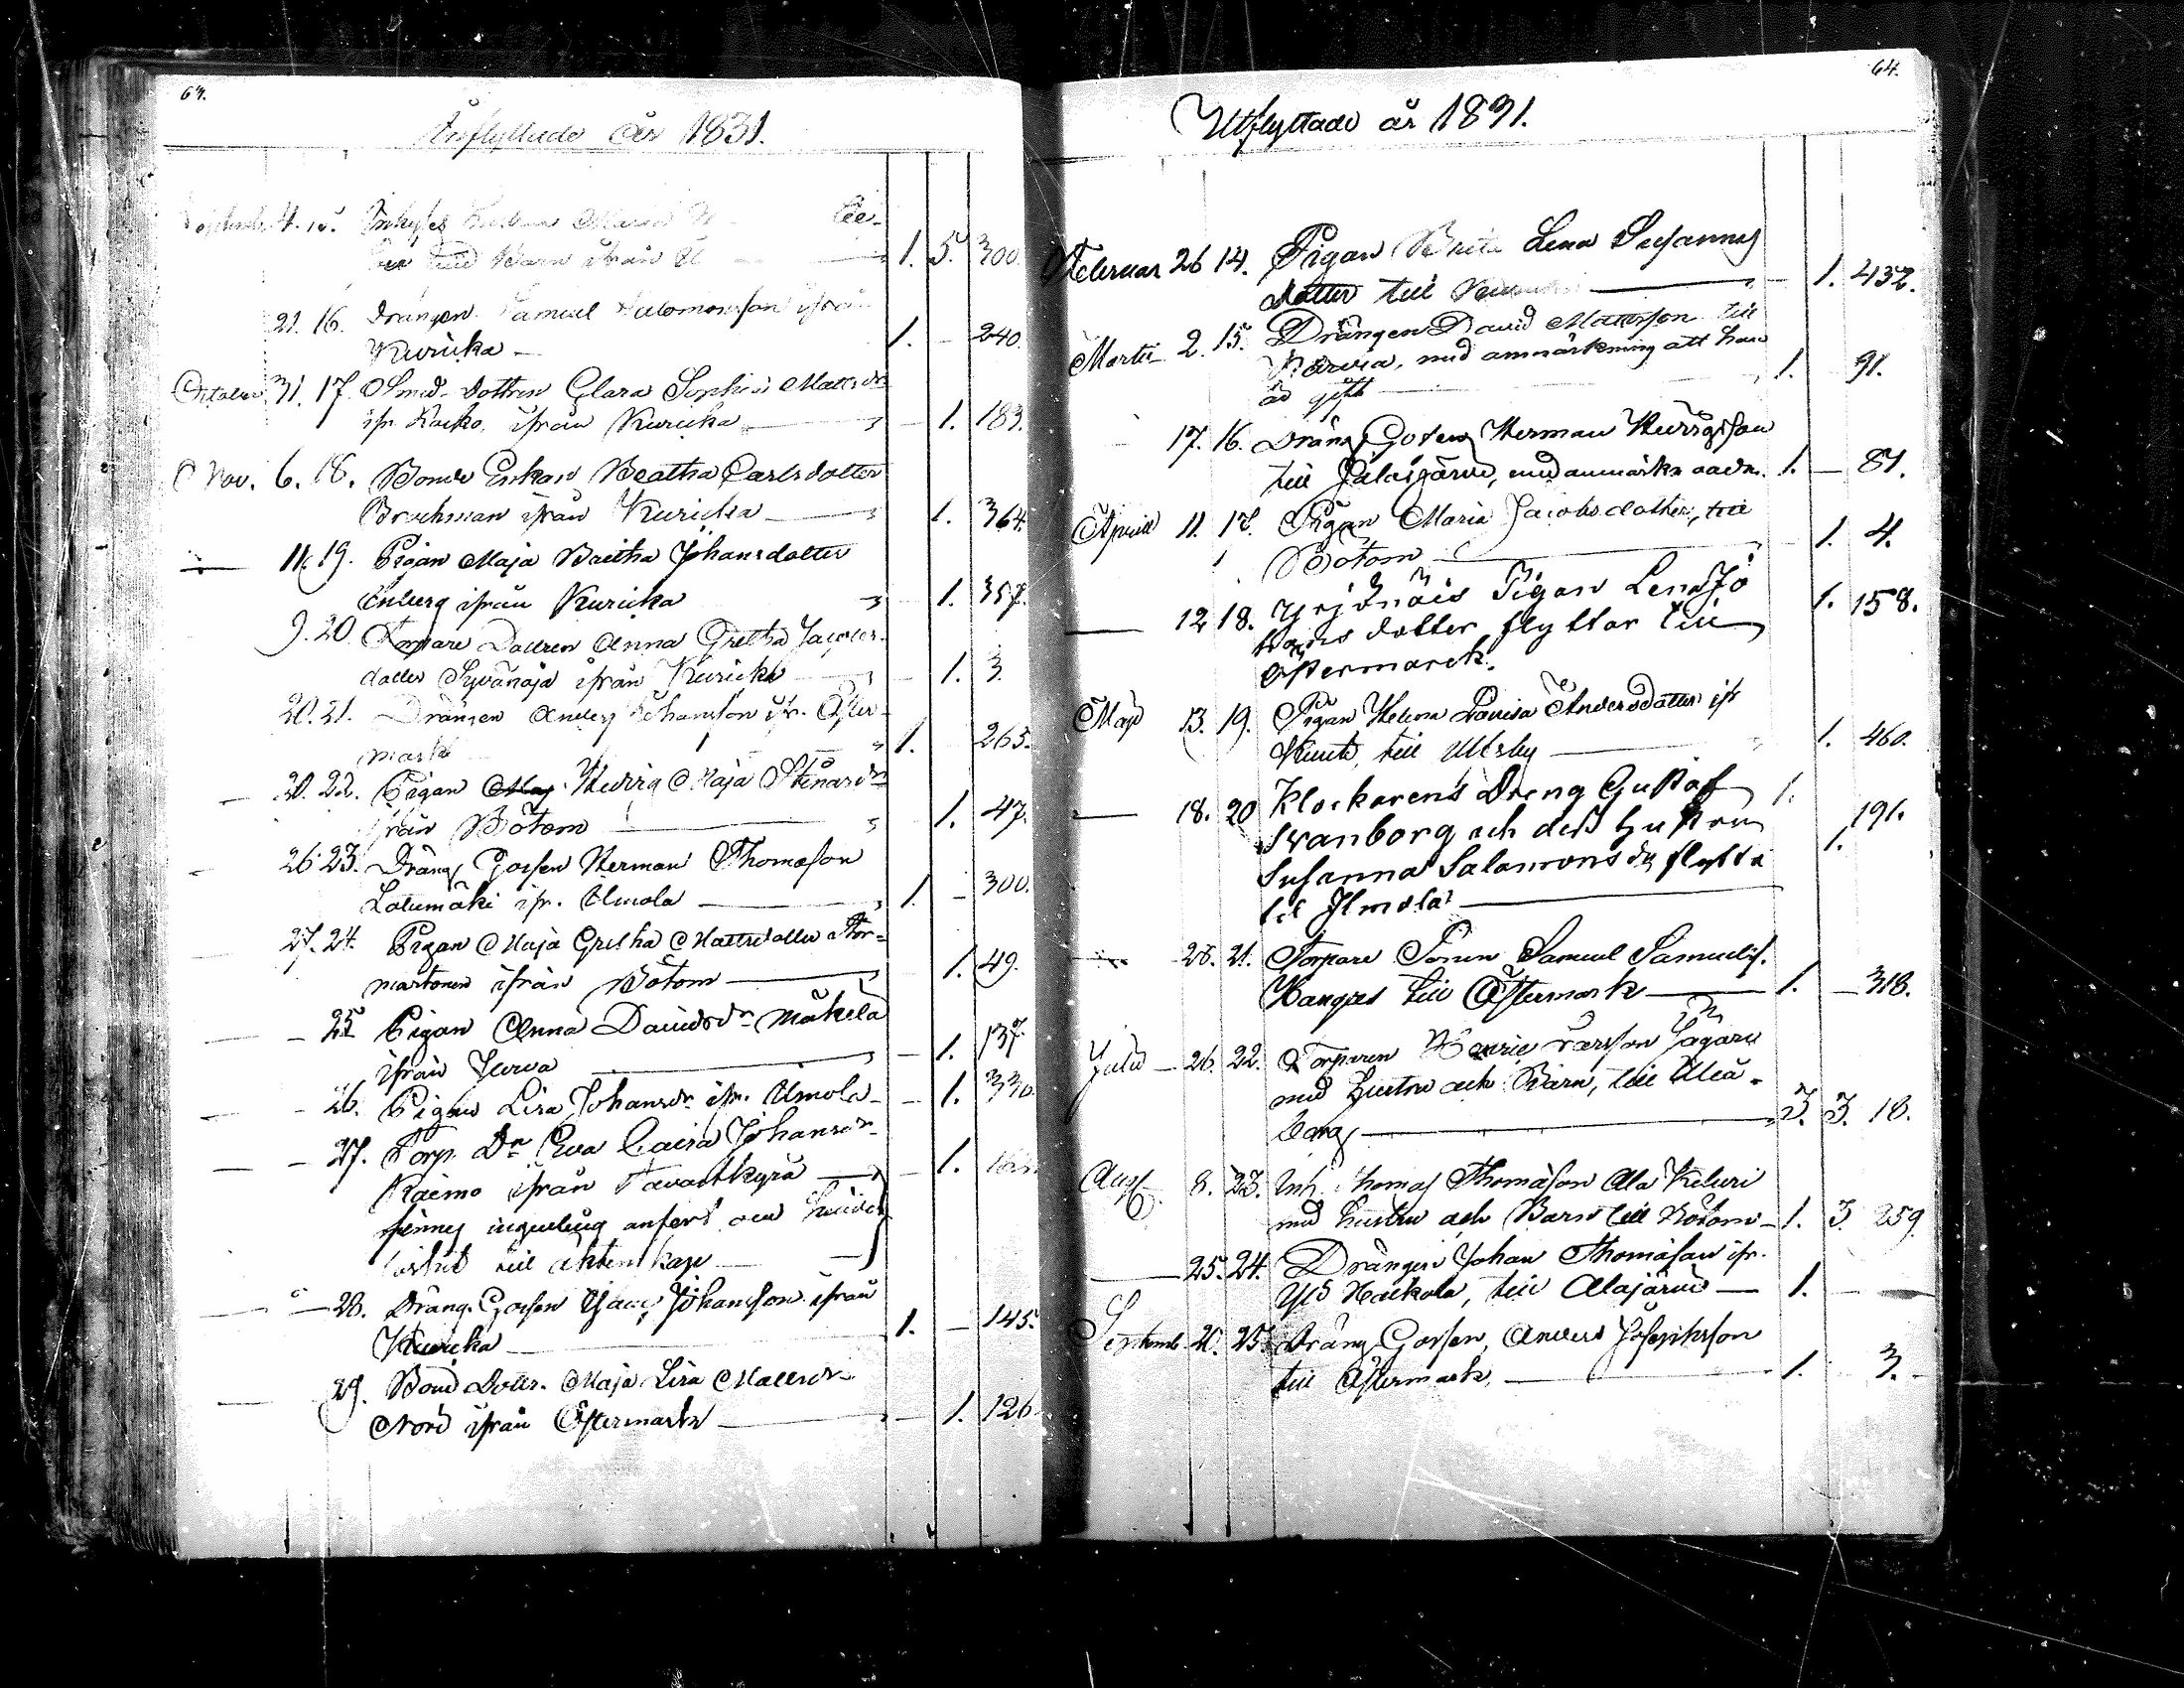 64.
Inflyttade år 1831.
Septemb. 4. 15. Inhyses Maria
med Barn ifrån 1. 5. 300.
21. 16. Drängen Samuel Salomonsson ifrån
Kuricka 1. 240.
October 31. 17. Smed-dottren Clara Sophia Mattsdr
ifr. Koiko, ifrån Kuricka 1. 183.
Nov. 6. 18. Bonde Enkan Beatha Carlsdotter
Brochman ifrån Kuricka 1. 364.
11. 19. Pigan Maja Britha Johansdotter
Enberg ifrån Kuricka 1. 357.
9. 20. Torpare Dottren Anna Gretha Jacobs-
dotter Syvänoja ifrån Kuricka 1. 3.
20. 21. Drängen Anders Johansson ifr. Öster-
mark 1. 265.
20. 22. Pigan Maj Hedvig Maja Stenarsdr
ifrån Bötom 1. 47.
26. 23. Dräng Gossen Herman Thomasson
Latumäki ifr. Ilmola 1. 300.
27. 24. Pigan Maja Gretha Mattsdotter Stor-
martonen ifrån Bötom 1. 49.
25 Pigan Anna Davidsdr Mäkelä
ifrån Jurva 1. 137.
26. Pigan Lisa Johansdr ifr. Ilmola 1. 330.
27. Torp. Dr Eva Caisa Johansdr
Raemo ifrån Tavastkyrå 1.
finnes ingenting anfört om hinder
till äktenskap
28. Dräng Gossen Isaac Johansson ifrån
Kuricka 1. 145.
29. Bond Dottr. Maja Lisa Mattsdr
Nord ifrån Östermark 1. 126.
64.
Utflyttade år 1831.
Februar 26 14. Pigan Brita Lena Susannæ
dotter till 1. 432.
Martii 2. 15. Drängen David Mattsson till
Kärvia, med anmärkning att han
är gift 1. 91.
17. 16. Dräng Gossen Herman Henricsson
till Jalasjärvi, med anmärkn 1. 81.
Aprill 11. 17. Pigan Maria Jacobsdotter, till
Bötom 1. 4.
12 18. Yrjänäis Pigan Lena Jo
hans dotter flyttar till 1. 158.
Östermarck.
Maji 13. 19. Pigan Helena Lovisa Andersdotter ifr
Knuts, till Ulfsby 1. 460.
18. 20 Klockarens Dreng Gustaf 1.
Svanborg och dess hustru 191.
Susanna Salamons dr flytta 1.
til Ilmola
28. 21. Torpare Sonen Samuel Samuelss.
Kangas till Östermark 1. 318.
Julii 26. 22. Torparen Henric Larsson Jägare
med hustru och Barn, till Uleå-
borg 3. 3. 18.
Aug. 8. 23. Inh. Thomas Thomasson Ala Keturi
med hustru och Barn till Bötom 1. 3. 259.
25. 24. Drängen Johan Thomasson ifr.
Yli Harkola, till Alajärvi 1.
Septemb 20. 25. Dräng Gossen, Anders Josephsson
till Östermark. 1. 3.